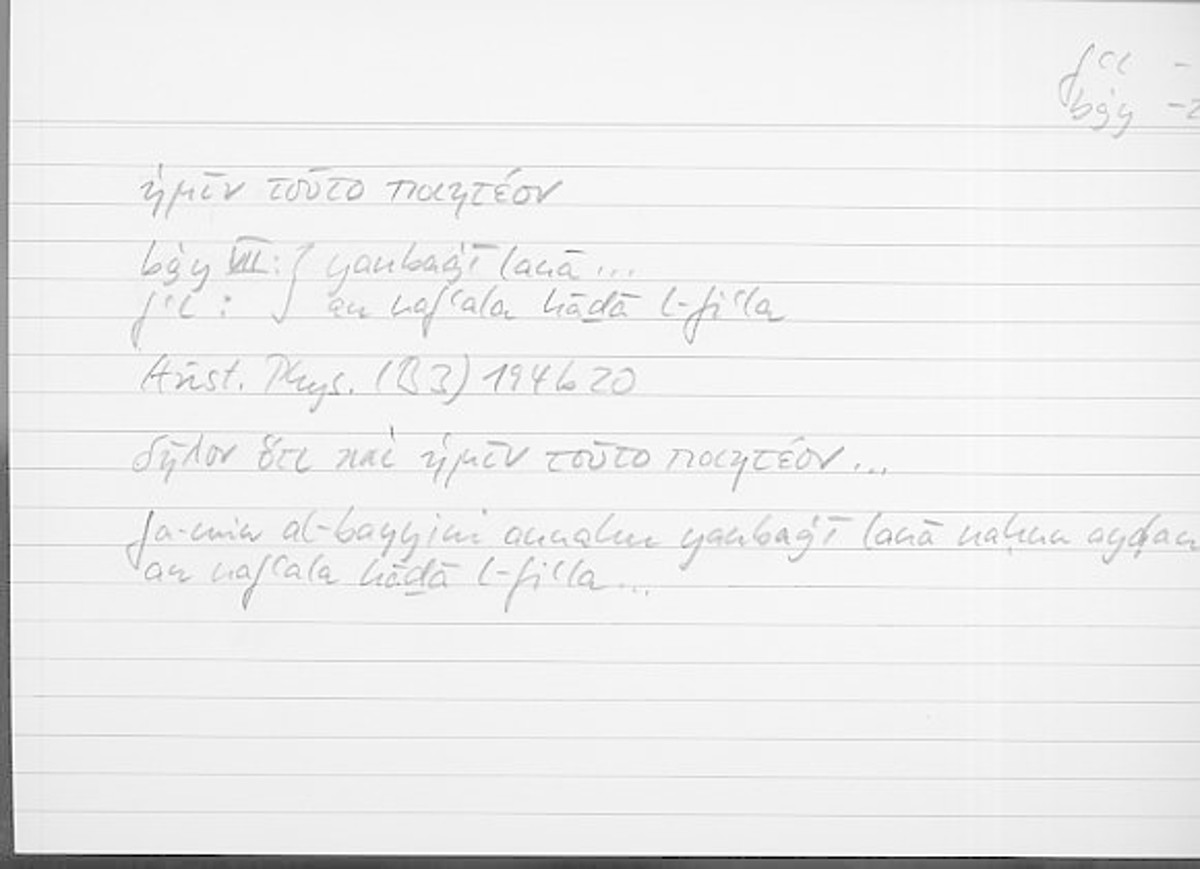 fʿl -
bġy -2
ἡμῖν τοῦτο ποιητέον
bġy VII: } yanbaġī lanā ...
fʿl : } an nafʿala hāḏā l-fiʿla
Arist. Phys. (B3) 194b20
δῆλον ὅτι καὶ ἡμῖν τοῦτο ποιητέον...
fa-min al-bayyini annahu yanbaġī lanā naḥnu ayḍan
an nafʿala hāḏā l-fiʿla ...